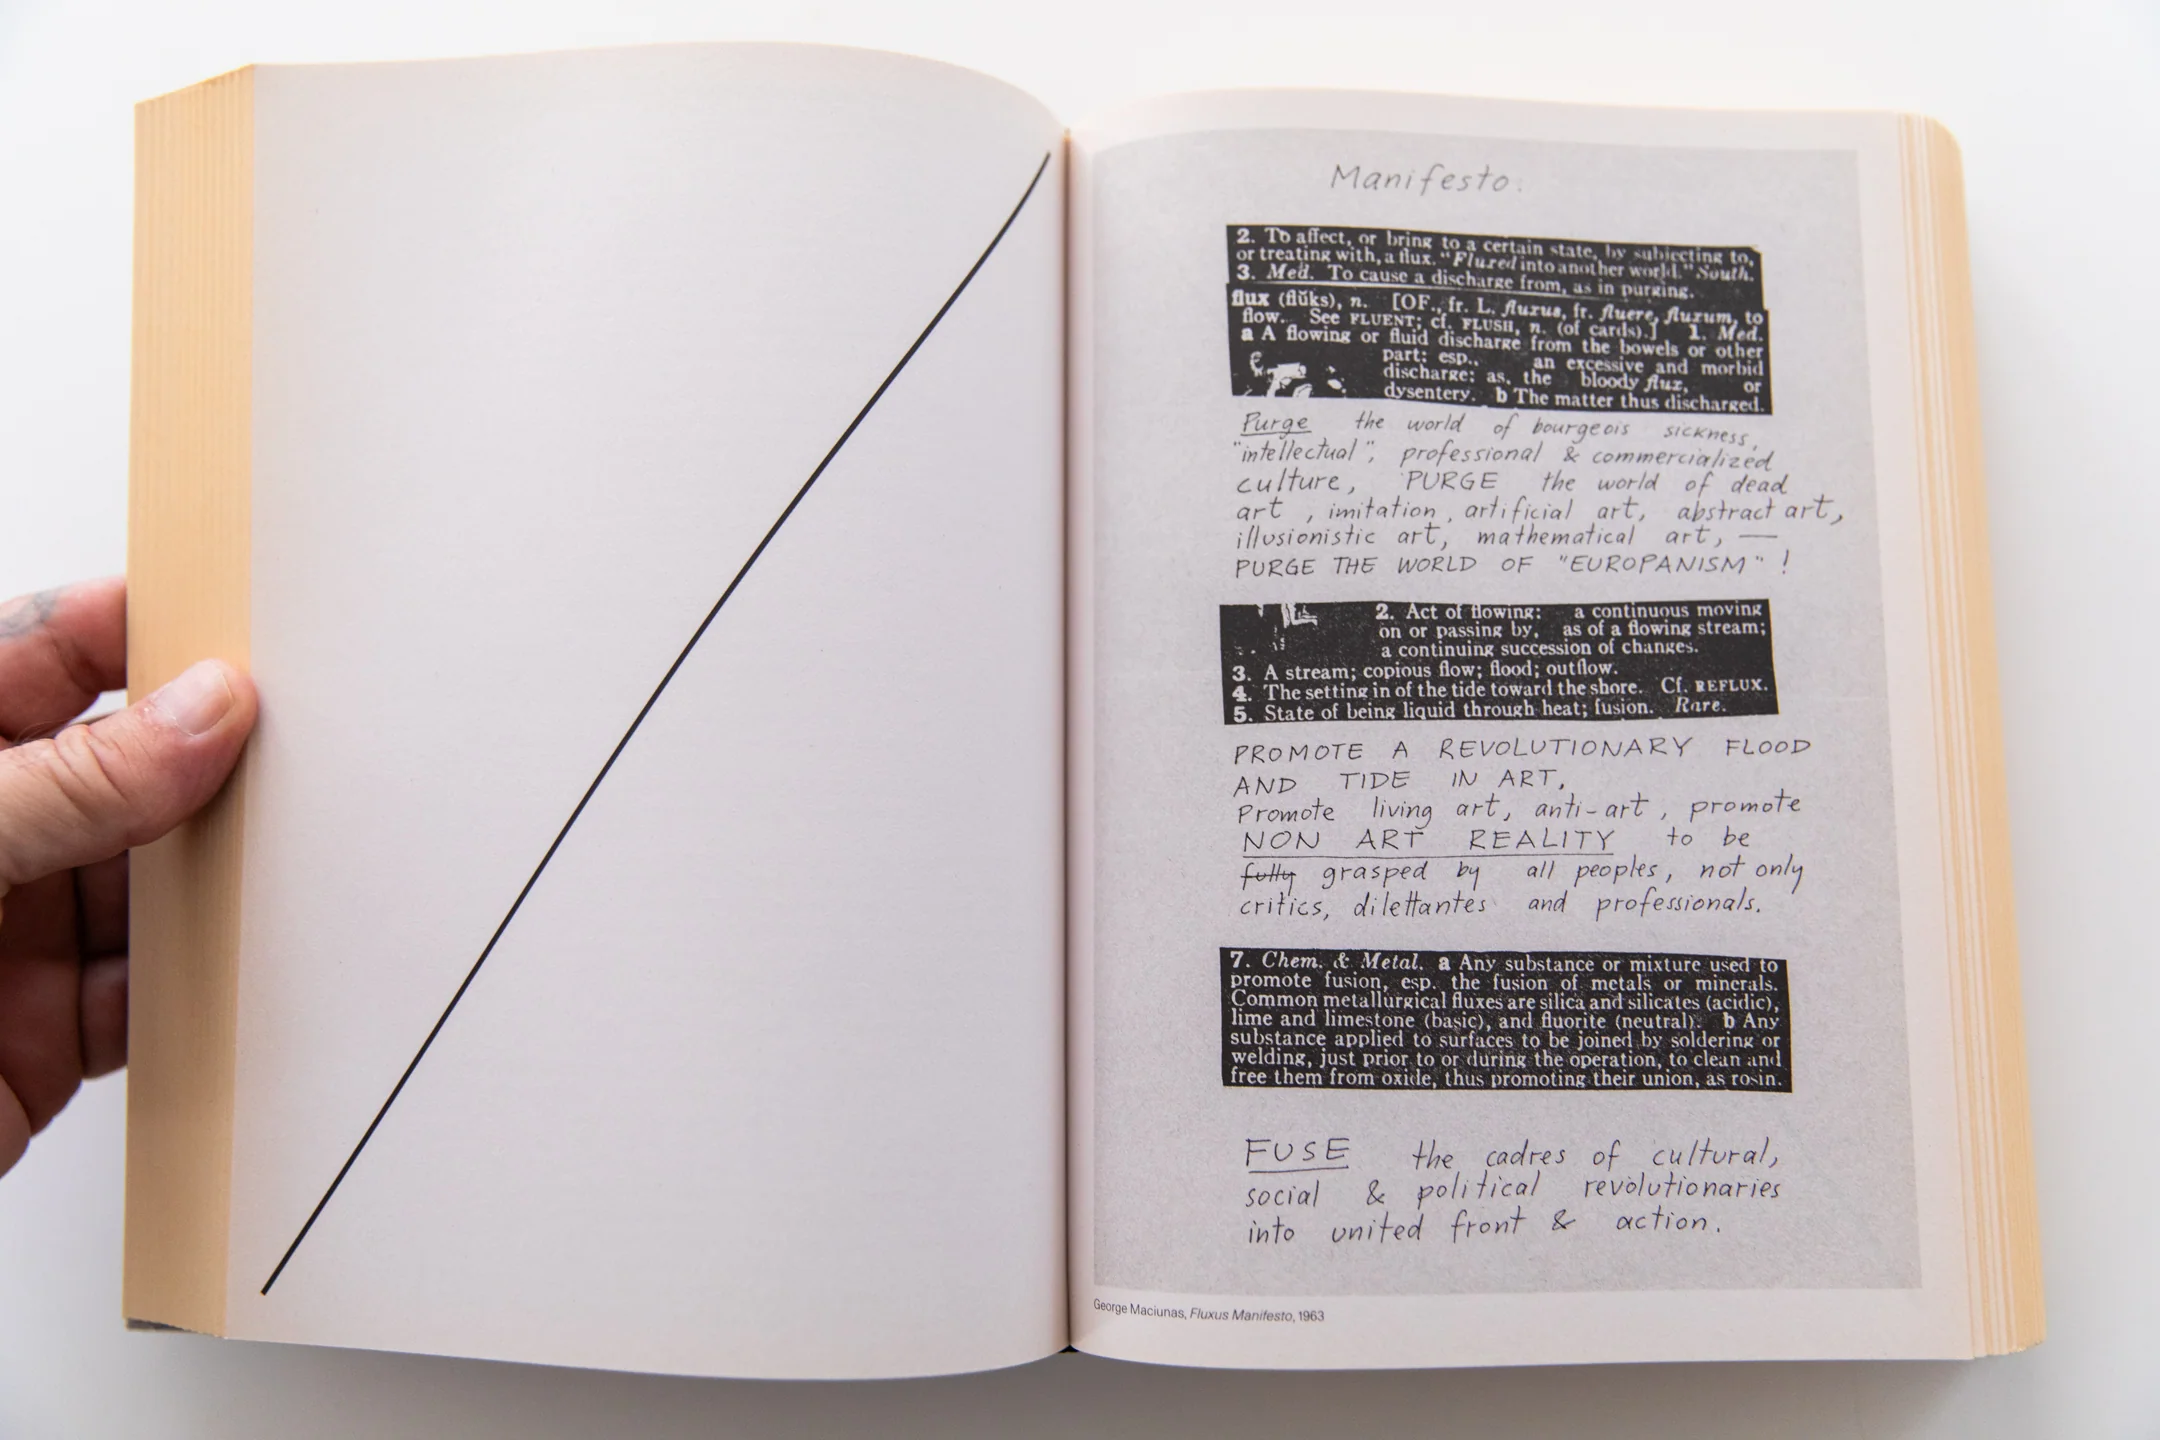 Manifesto.
2. To affect, or bring to a certain state, by subjecting to,
or treating with, a flux. "Fluxed into another world." South.
3. Med. To cause a discharge from, as in purging.
flux (flŭks), n. [OF., fr. L. fluxus, fr. fluere, fluxum, to
flow. See FLUENT; cf. FLUSH, n. (of cards).] 1. Med.
a A flowing or fluid discharge from the bowels or other
part: esp., an excessive and morbid
discharge: as, the bloody flux, or
dysentery. b The matter thus discharged.
Purge the world of bourgeois sickness,
"intellectual", professional & commercialized
culture, PURGE the world of dead
art , imitation , artificial art, abstract art,
illusionistic art, mathematical art, —
PURGE THE WORLD OF "EUROPANISM" !
2. Act of flowing: a continuous moving
on or passing by, as of a flowing stream;
a continuing succession of changes.
3. A stream; copious flow; flood; outflow.
4. The setting in of the tide toward the shore. Cf. REFLUX.
5. State of being liquid through heat; fusion. Rare.
PROMOTE A REVOLUTIONARY FLOOD
AND TIDE IN ART,
Promote living art, anti-art , promote
NON ART REALITY to be
fully grasped by all peoples, not only
critics, dilettantes and professionals.
7. Chem. & Metal. a Any substance or mixture used to
promote fusion, esp. the fusion of metals or minerals.
Common metallurgical fluxes are silica and silicates (acidic),
lime and limestone (basic), and fluorite (neutral). b Any
substance applied to surfaces to be joined by soldering or
welding, just prior to or during the operation, to clean and
free them from oxide, thus promoting their union, as rosin.
FUSE the cadres of cultural,
social & political revolutionaries
into united front & action.
George Maciunas, Fluxus Manifesto, 1963